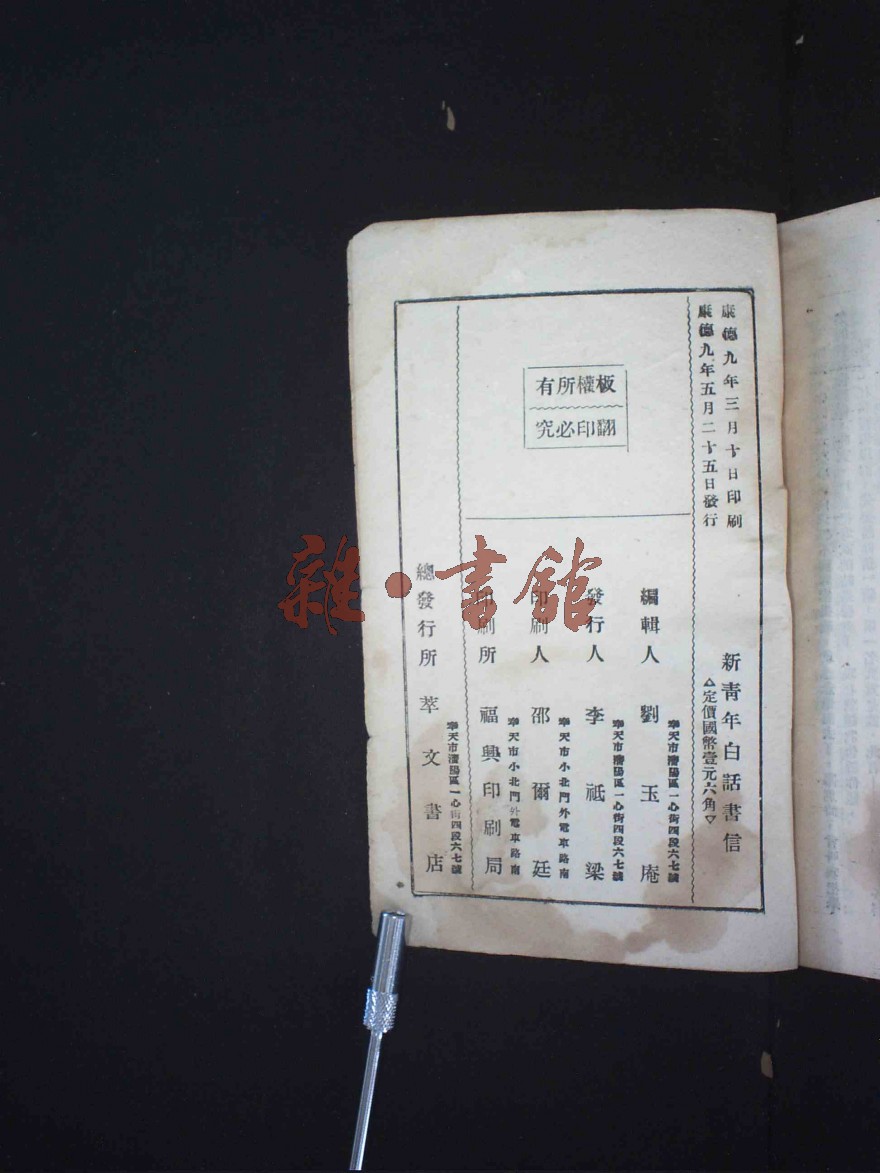 康德九年三月十日印刷
康德九年五月二十五日發行
新靑年白話書信
△定價國幣壹元六角▽
板權所有
翻印必究
編輯人 劉玉庵
奉天市瀋陽區一心街四段六七號
發行人 李祇梁
奉天市瀋陽區一心街四段六七號
印刷人 邵爾廷
奉天市小北門外電車路南
印刷所 福興印刷局
奉天市小北門外電車路南
總發行所 萃文書店
奉天市瀋陽區一心街四段六七號
雜·書館